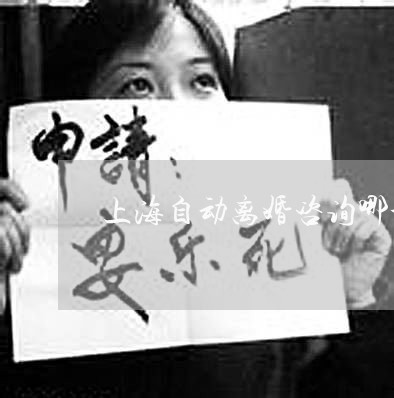 申請：
上海自动离婚咨询哪
安乐死